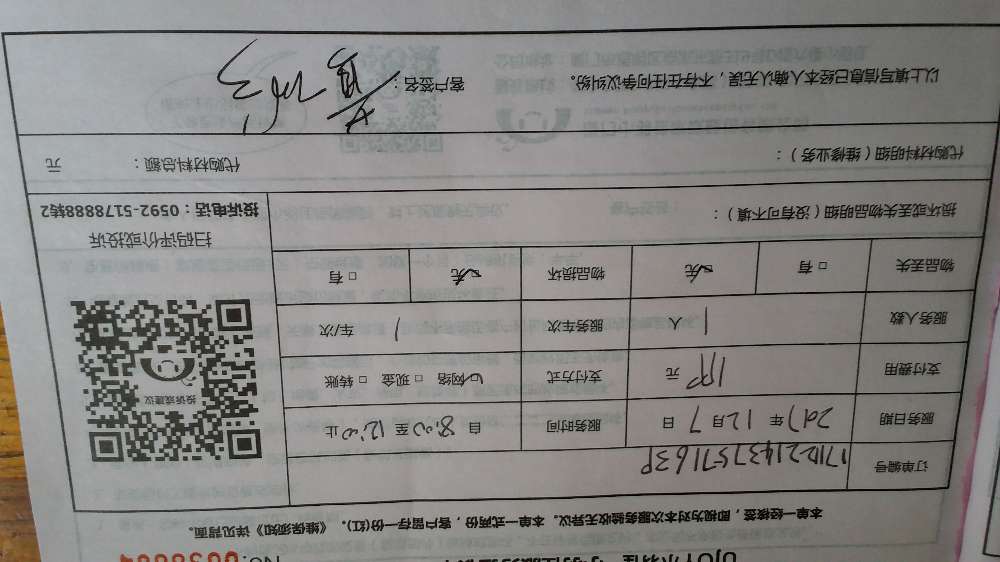 本单一经接签，即视为对本次服务验收无异议。本单一式两份，客户留存一份(红)。《维保须知》详见背面。
订单编号
服务日期 2017年12月7日 服务时间 自8:00至12:00止
支付费用 元 支付方式 ☑网络 □现金 □转账
服务人数 1人 服务车次 1 车/次
物品丢失 □有 ☑无 物品损坏 ☑无 □有
损坏或丢失物品明细（没有可不填）：
投诉或建议
扫码评价或投诉
投诉电话：0592-5178888转2
代购材料明细（维修业务）： 代购材料总额： 元
以上填写信息已经本人确认无误，不存在任何争议纠纷。 客户签名：